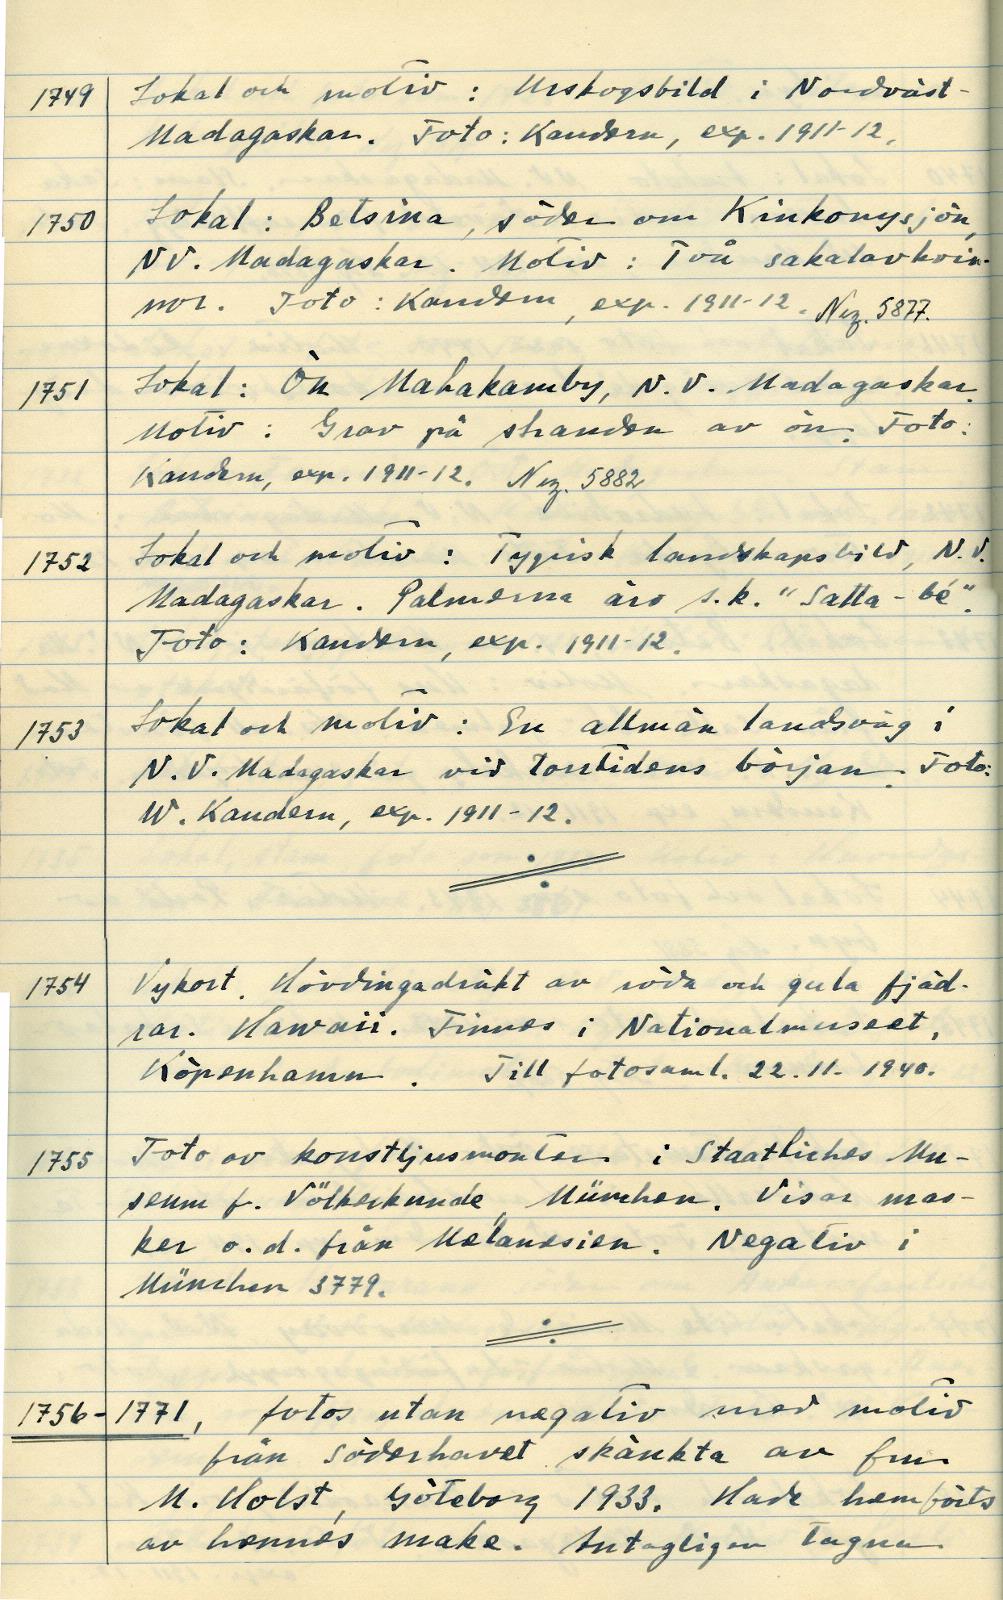 1749 Lokal och motiv : Urskogsbild i Nordväst-
Madagaskar. Foto: Kaudern, exp. 1911-12.
1750 Lokal : Betsina, söder om Kinkonysjön,
NV. Madagaskar. Motiv : Två sakalavkvin-
nor. Foto : Kaudern, exp. 1911-12. Neg. 5877.
1751 Lokal : Ön Mahakamby, N.V. Madagaskar.
Motiv : Grav på stranden av ön. Foto:
Kaudern, exp. 1911-12. Neg. 5882
1752 Lokal och motiv : Typisk landskapsbild, N.V.
Madagaskar. Palmerna äro s.k. "Satta-bé".
Foto: Kaudern, exp. 1911-12.
1753 Lokal och motiv : En allmän landsväg i
N.V. Madagaskar vid torrtidens början. Foto:
W. Kaudern, exp. 1911-12.
1754 Vykort. Hövdingadräkt av röda och gula fjäd-
rar. Hawaii. Finnes i Nationalmuseet,
Köpenhamn. Till fotosaml. 22.11. 1940.
1755 Foto av konstljusmonter i Staatliches Mu-
seum f. Völkerkunde, München. Visar mas-
ker o.d. från Melanesien. Negativ i
München 3779.
1756-1771, fotos utan negativ med motiv
från Söderhavet skänkta av fru
M. Holst, Göteborg 1933. Hade hemförts
av hennes make. Antagligen tagna